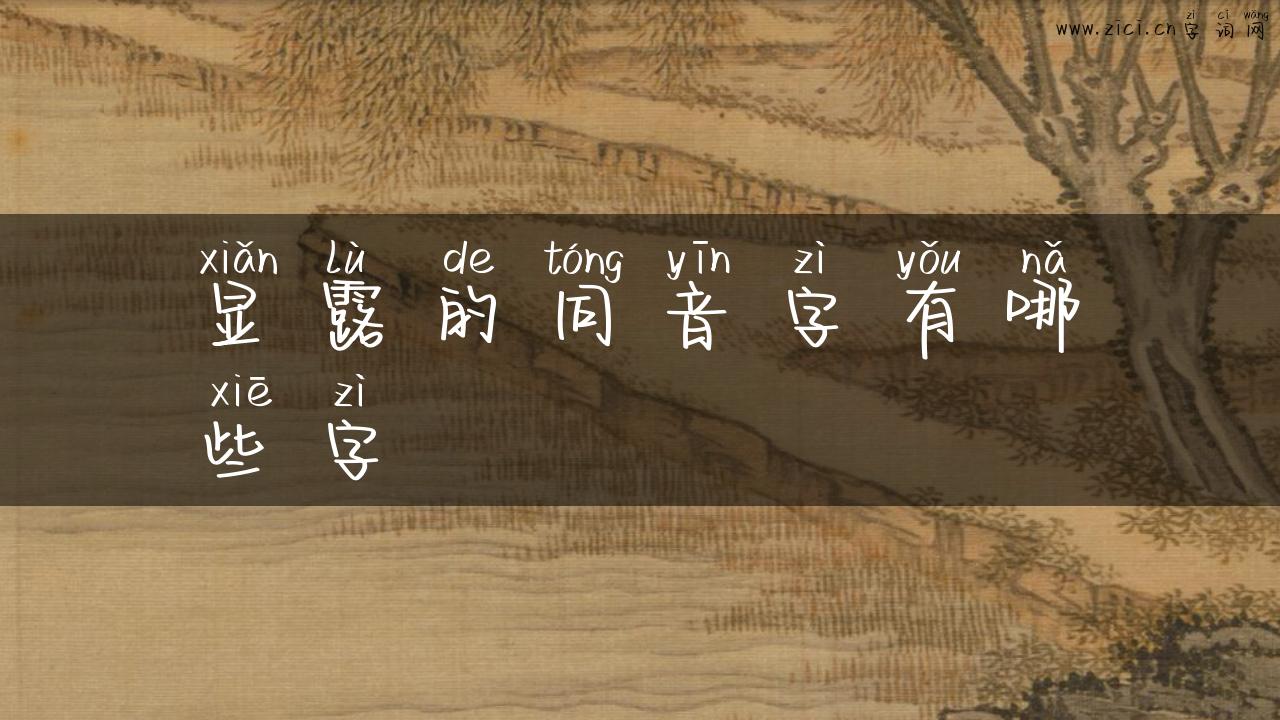 zì cí wǎng
www.zici.cn字词网
xiǎn lù de tóng yīn zì yǒu nǎ
显露的同音字有哪
xiē zì
些字